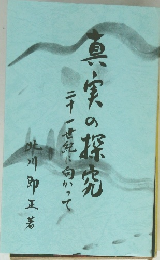 真実の探究
二十一世紀に向かって
川 即正著